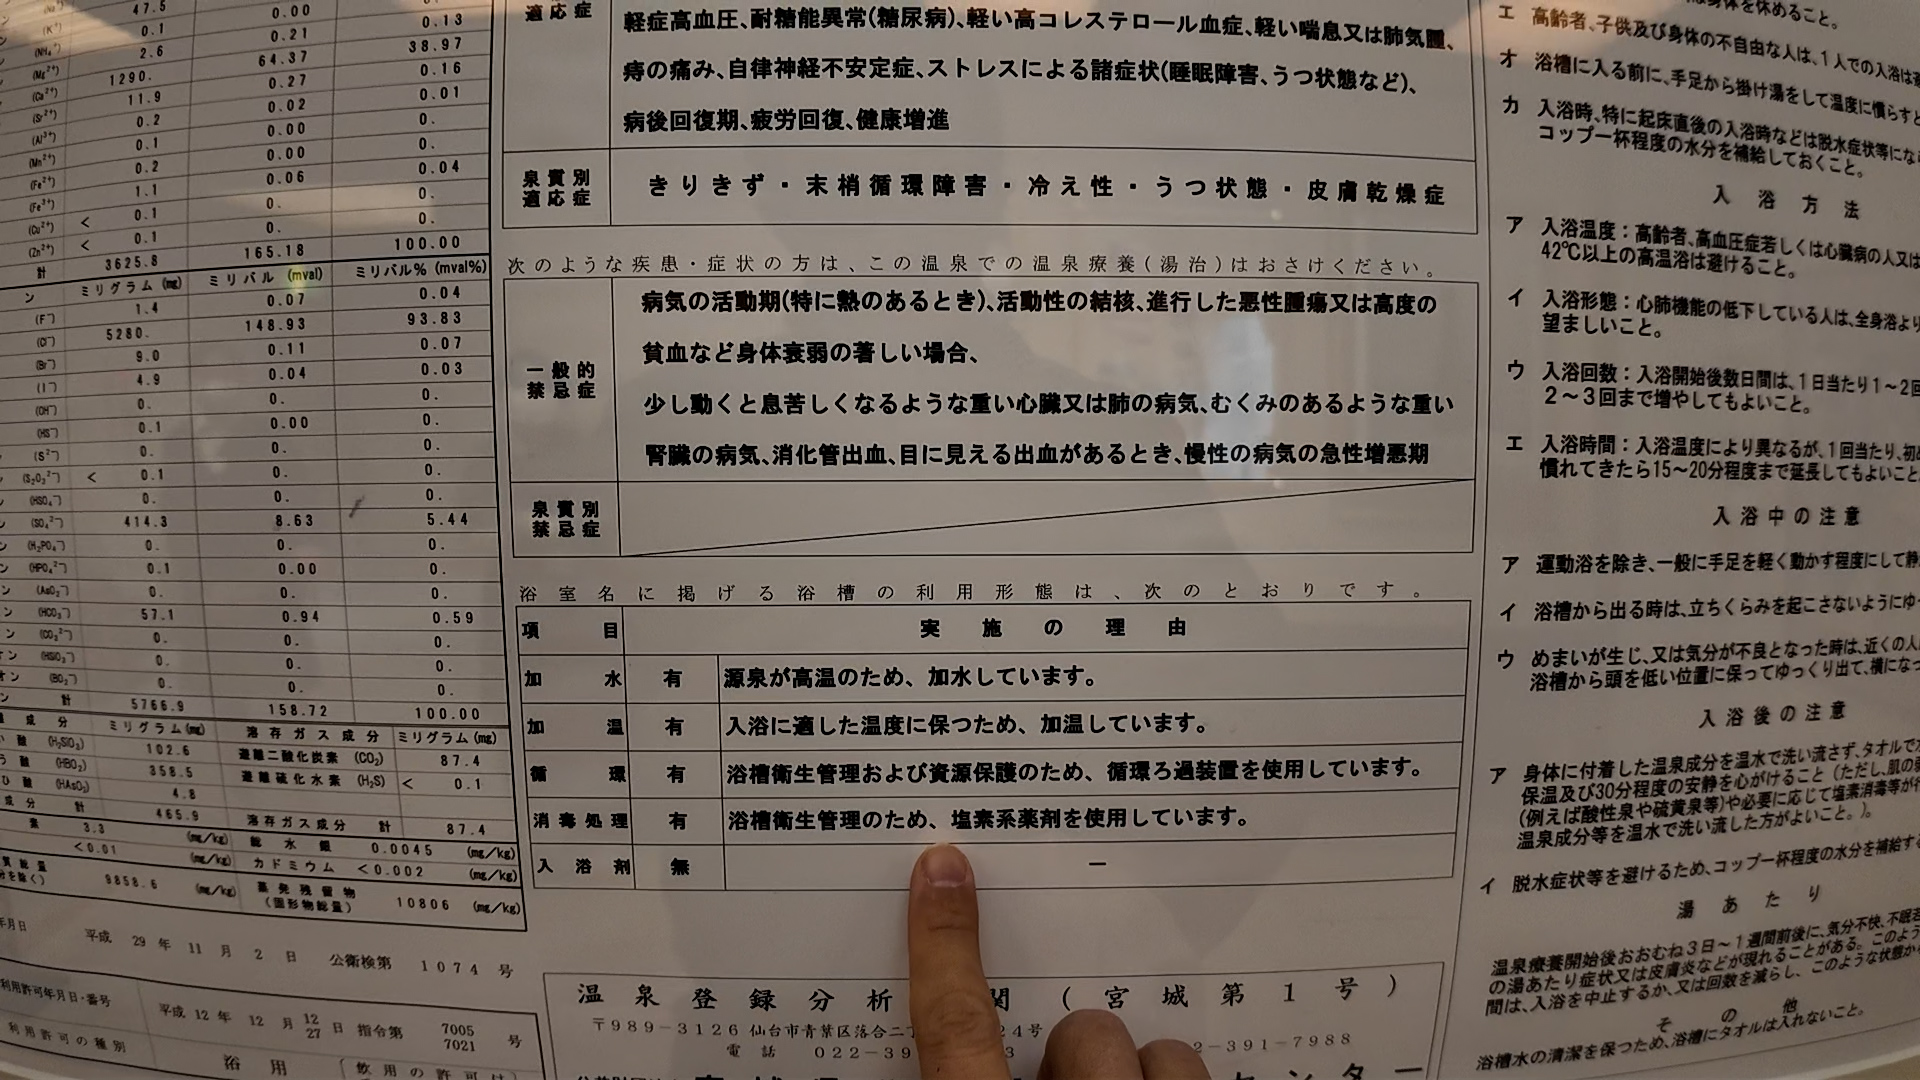 (K⁺) 47.5 0.00
(NH₄⁺) 0.1 0.21 0.13
(Mg²⁺) 2.6 64.37 38.97
(Ca²⁺) 1290. 0.27 0.16
(Sr²⁺) 11.9 0.02 0.01
(Al³⁺) 0.2 0.00 0.
(Mn²⁺) 0.1 0.00 0.
(Fe²⁺) 0.2 0.06 0.04
(Fe³⁺) 1.1 0. 0.
(Cu²⁺) < 0.1 0. 0.
(Zn²⁺) < 0.1
計 3625.8 165.18 100.00
ン ミリグラム (mg) ミリバル (mval) ミリバル% (mval%)
(F⁻) 1.4 0.07 0.04
(Cl⁻) 5280. 148.93 93.83
(Br⁻) 9.0 0.11 0.07
(I⁻) 4.9 0.04 0.03
(OH⁻) 0. 0. 0.
(HS⁻) 0.1 0.00 0.
(S²⁻) 0. 0. 0.
(S₂O₃²⁻) < 0.1 0. 0.
(HSO₄⁻) 0. 0. 0.
(SO₄²⁻) 414.3 8.63 5.44
(H₂PO₄⁻) 0. 0. 0.
(HPO₄²⁻) 0.1 0.00 0.
(AsO₂⁻) 0. 0. 0.
(HCO₃⁻) 57.1 0.94 0.59
(CO₃²⁻) 0. 0. 0.
(HSiO₃⁻) 0. 0. 0.
(BO₂⁻) 0. 0. 0.
計 5766.9 158.72 100.00
成分 ミリグラム(mg) 溶存ガス成分 ミリグラム(mg)
酸 (H₂SiO₃) 102.6 遊離二酸化炭素 (CO₂) 87.4
酸 (HBO₂) 358.5 遊離硫化水素 (H₂S) < 0.1
ひ酸 (HAsO₂) 4.8
成分 計 465.9 溶存ガス成分 計 87.4
素 3.3 (mg/kg) 総水銀 0.0045 (mg/kg)
<0.01 (mg/kg) カドミウム <0.002 (mg/kg)
9858.6 (mg/kg) 蒸発残留物 (固形物総量) 10806 (mg/kg)
年月日 平成 29年 11月 2日 公衛検第 1074 号
利用許可年月日・番号 平成 12年 12月 12 27 日 指令第 7005 7021 号
利用許可の種別 浴用
適応症
軽症高血圧、耐糖能異常(糖尿病)、軽い高コレステロール血症、軽い喘息又は肺気腫、
痔の痛み、自律神経不安定症、ストレスによる諸症状(睡眠障害、うつ状態など)、
病後回復期、疲労回復、健康増進
泉質別適応症
きりきず・末梢循環障害・冷え性・うつ状態・皮膚乾燥症
次のような疾患・症状の方は、この温泉での温泉療養(湯治)はおさけください。
一般的禁忌症
病気の活動期(特に熱のあるとき)、活動性の結核、進行した悪性腫瘍又は高度の
貧血など身体衰弱の著しい場合、
少し動くと息苦しくなるような重い心臓又は肺の病気、むくみのあるような重い
腎臓の病気、消化管出血、目に見える出血があるとき、慢性の病気の急性増悪期
泉質別禁忌症
浴室名に掲げる浴槽の利用形態は、次のとおりです。
項目 実施の理由
加水 有 源泉が高温のため、加水しています。
加温 有 入浴に適した温度に保つため、加温しています。
循環 有 浴槽衛生管理および資源保護のため、循環ろ過装置を使用しています。
消毒処理 有 浴槽衛生管理のため、塩素系薬剤を使用しています。
入浴剤 無 ー
温泉登録分析 関(宮城第1号)
〒989-3126 仙台市青葉区落合二丁 24号
電話 022-39 3
2-391-7988
センター
身体を休めること。
エ 高齢者、子供及び身体の不自由な人は、1人での入浴は
オ 浴槽に入る前に、手足から掛け湯をして温度に慣らすと
カ 入浴時、特に起床直後の入浴時などは脱水症状等にな
コップ一杯程度の水分を補給しておくこと。
入浴方法
ア 入浴温度:高齢者、高血圧症若しくは心臓病の人又は
42℃以上の高温浴は避けること。
イ 入浴形態:心肺機能の低下している人は、全身浴より
望ましいこと。
ウ 入浴回数:入浴開始後数日間は、1日当たり1～2回
2～3回まで増やしてもよいこと。
エ 入浴時間:入浴温度により異なるが、1回当たり、初め
慣れてきたら15～20分程度まで延長してもよいこと。
入浴中の注意
ア 運動浴を除き、一般に手足を軽く動かす程度にして静
イ 浴槽から出る時は、立ちくらみを起こさないようにゆっ
ウ めまいが生じ、又は気分が不良となった時は、近くの人
浴槽から頭を低い位置に保ってゆっくり出て、横になっ
入浴後の注意
ア 身体に付着した温泉成分を温水で洗い流さず、タオルで
保温及び30分程度の安静を心がけること(ただし、肌の
(例えば酸性泉や硫黄泉等)や必要に応じて塩素消毒等が
温泉成分等を温水で洗い流した方がよいこと。)。
イ 脱水症状等を避けるため、コップ一杯程度の水分を補給する
湯あたり
温泉療養開始後おおむね3日～1週間前後に、気分不快、不眠
の湯あたり症状又は皮膚炎などが現れることがある。このよう
間は、入浴を中止するか、又は回数を減らし、このような状態か
その他
浴槽水の清潔を保つため、浴槽にタオルは入れないこと。